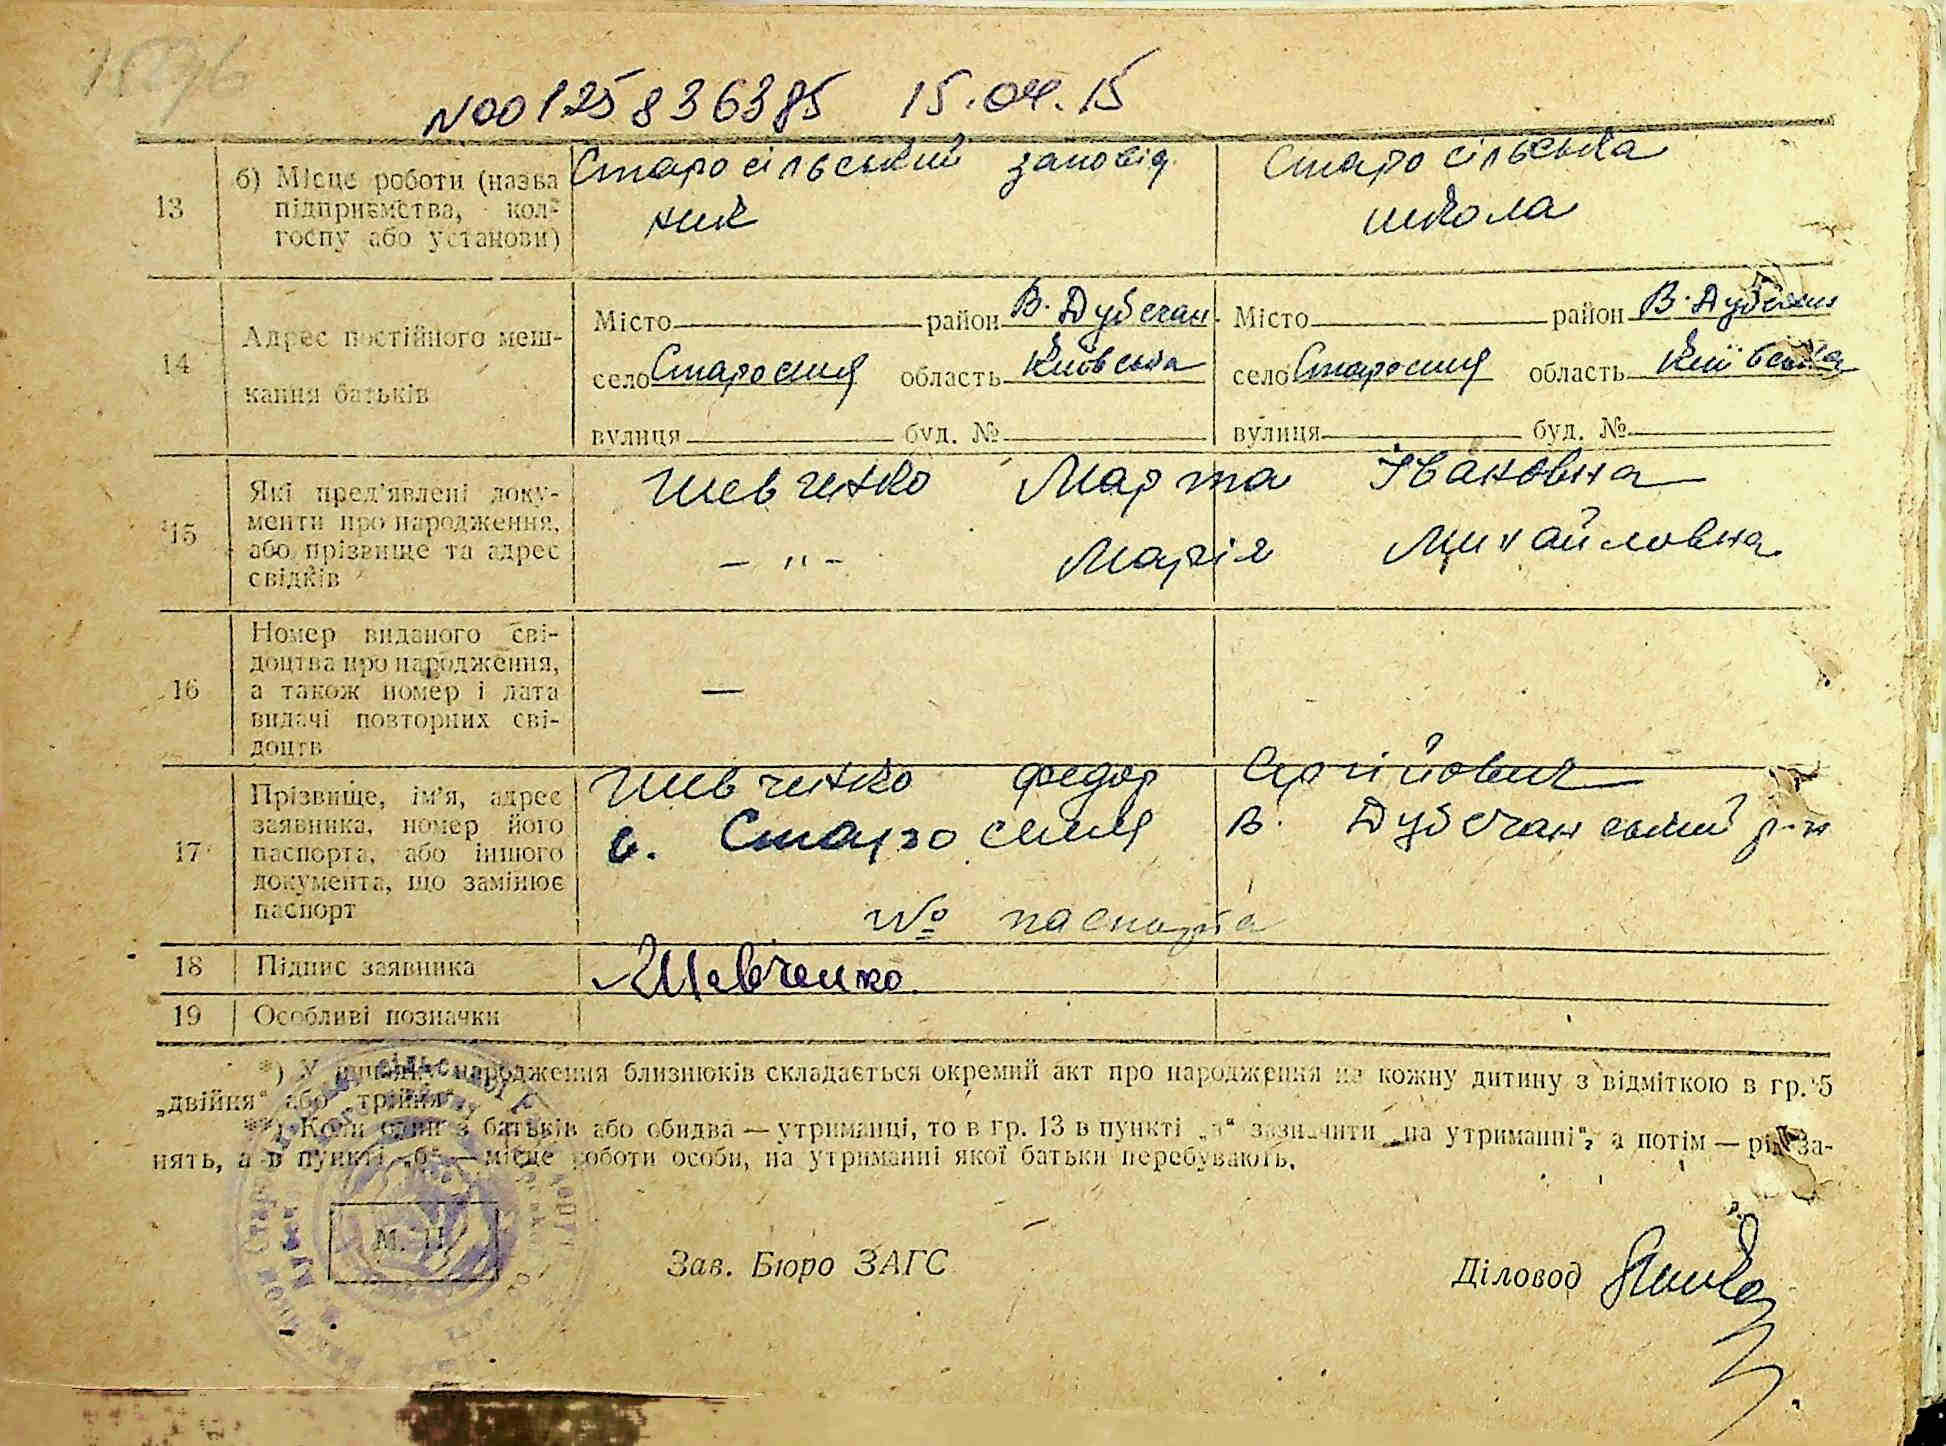 1896
N00125836385 15.04.15
13 б) Місце роботи (назва підприємства, колгоспу або установи)
Старосільський заповід
ник
Старосільська
школа
14 Адрес постійного мешкання батьків
Місто район В. Дубечан.
село Староселля область Київська
вулиця буд. №
Місто район В. Дубечан
село Староселля область Київська
вулиця буд. №
15 Які пред'явлені документи про народження, або прізвище та адрес свідків
Шевченко Марта Івановна
— " — Марія Михайловна
16 Номер виданого свідоцтва про народження, а також номер і дата видачі повторних свідоцтв
—
17 Прізвище, ім'я, адрес заявника, номер його паспорта, або іншого документа, що замінює паспорт
Шевченко Федор Сергійович
с. Староселля В. Дубечанський р-н
№ паспорта
18 Підпис заявника
Шевченко
19 Особливі позначки
*) У випадку народження близнюків складається окремий акт про народження на кожну дитину з відміткою в гр. 5
„двійня" або „трійня".
**) Коли один з батьків або обидва — утриманці, то в гр. 13 в пункті „а" зазначити „на утриманні", а потім — рід за-
нять, а в пункті „б" — місце роботи особи, на утриманні якої батьки перебувають.
М. П.
Зав. Бюро ЗАГС
Діловод